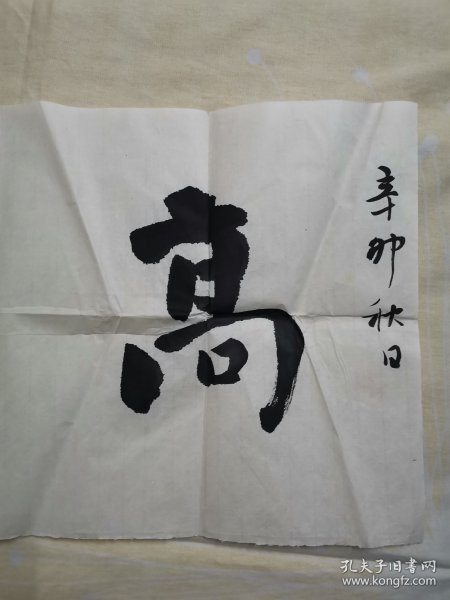 辛卯秋日
高
孔夫子旧书网
www.kongfz.com